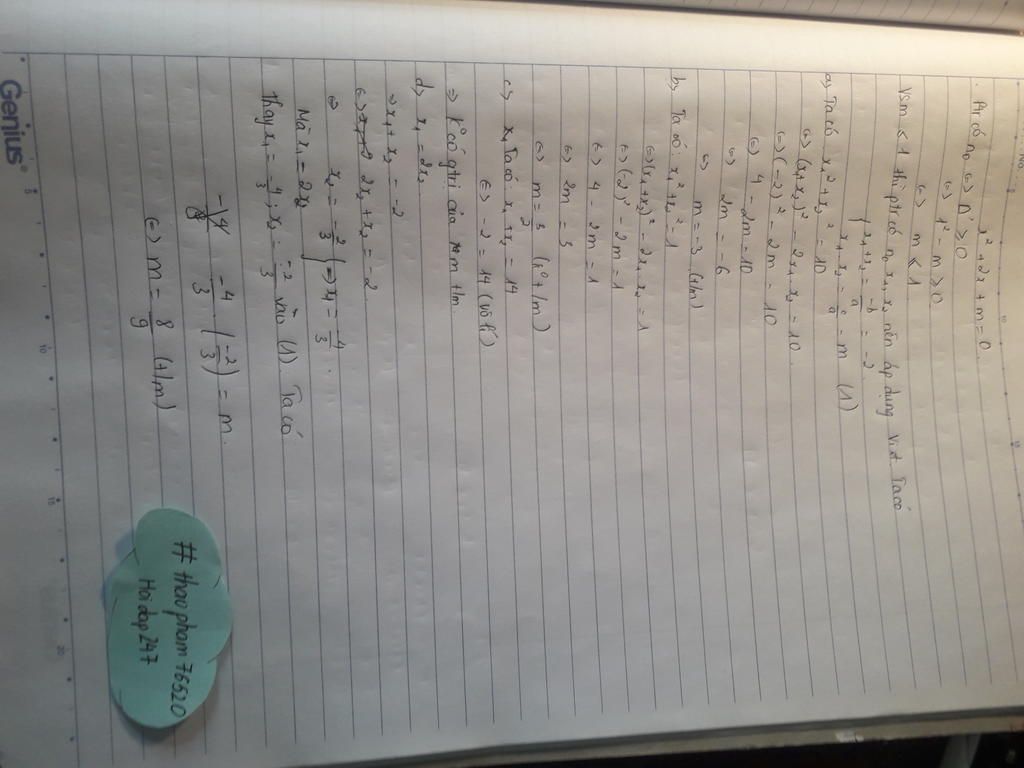 x² + 2x + m = 0.
Pt có n₀ (=) Δ' ≥ 0
(=) 1² - m ≥ 0
(=) m ≤ 1
Với m ≤ 1 thì pt có n₀ x₁, x₂ nên áp dụng Viét. Ta có
{ x₁ + x₂ = -b/a = -2.
x₁ . x₂ = c/a = m (1)
a, Ta có x₁² + x₂² = 10
(=) (x₁+x₂)² - 2x₁.x₂ = 10.
(=) (-2)² - 2m = 10
(=) 4 - 2m = 10
(=) 2m = -6
(=) m = -3 (t/m)
b, Ta có: x₁² + x₂² = 1
(=) (x₁+x₂)² - 2x₁.x₂ = 1
(=) (-2)² - 2m = 1
(=) 4 - 2m = 1
(=) 2m = 3
(=) m = 3/2 (k° t/m)
c, Ta có: x₁ + x₂ = 14
(=) -2 = 14 (vô lí)
=) K° có gtri của m t/m.
d, x₁ = 2x₂
=) x₁ + x₂ = -2
(=) 2x₂ + x₂ = -2
=) x₂ = -2/3 (=) x₁ = -4/3.
Mà x₁ = 2x₂
Thay x₁ = -4/3; x₂ = -2/3 vào (1). Ta có
-4/3 . (-2/3) = m.
(=) m = 8/9 (t/m)
# thaopham76520
Hoidap247
Genius®
5
10
15
20